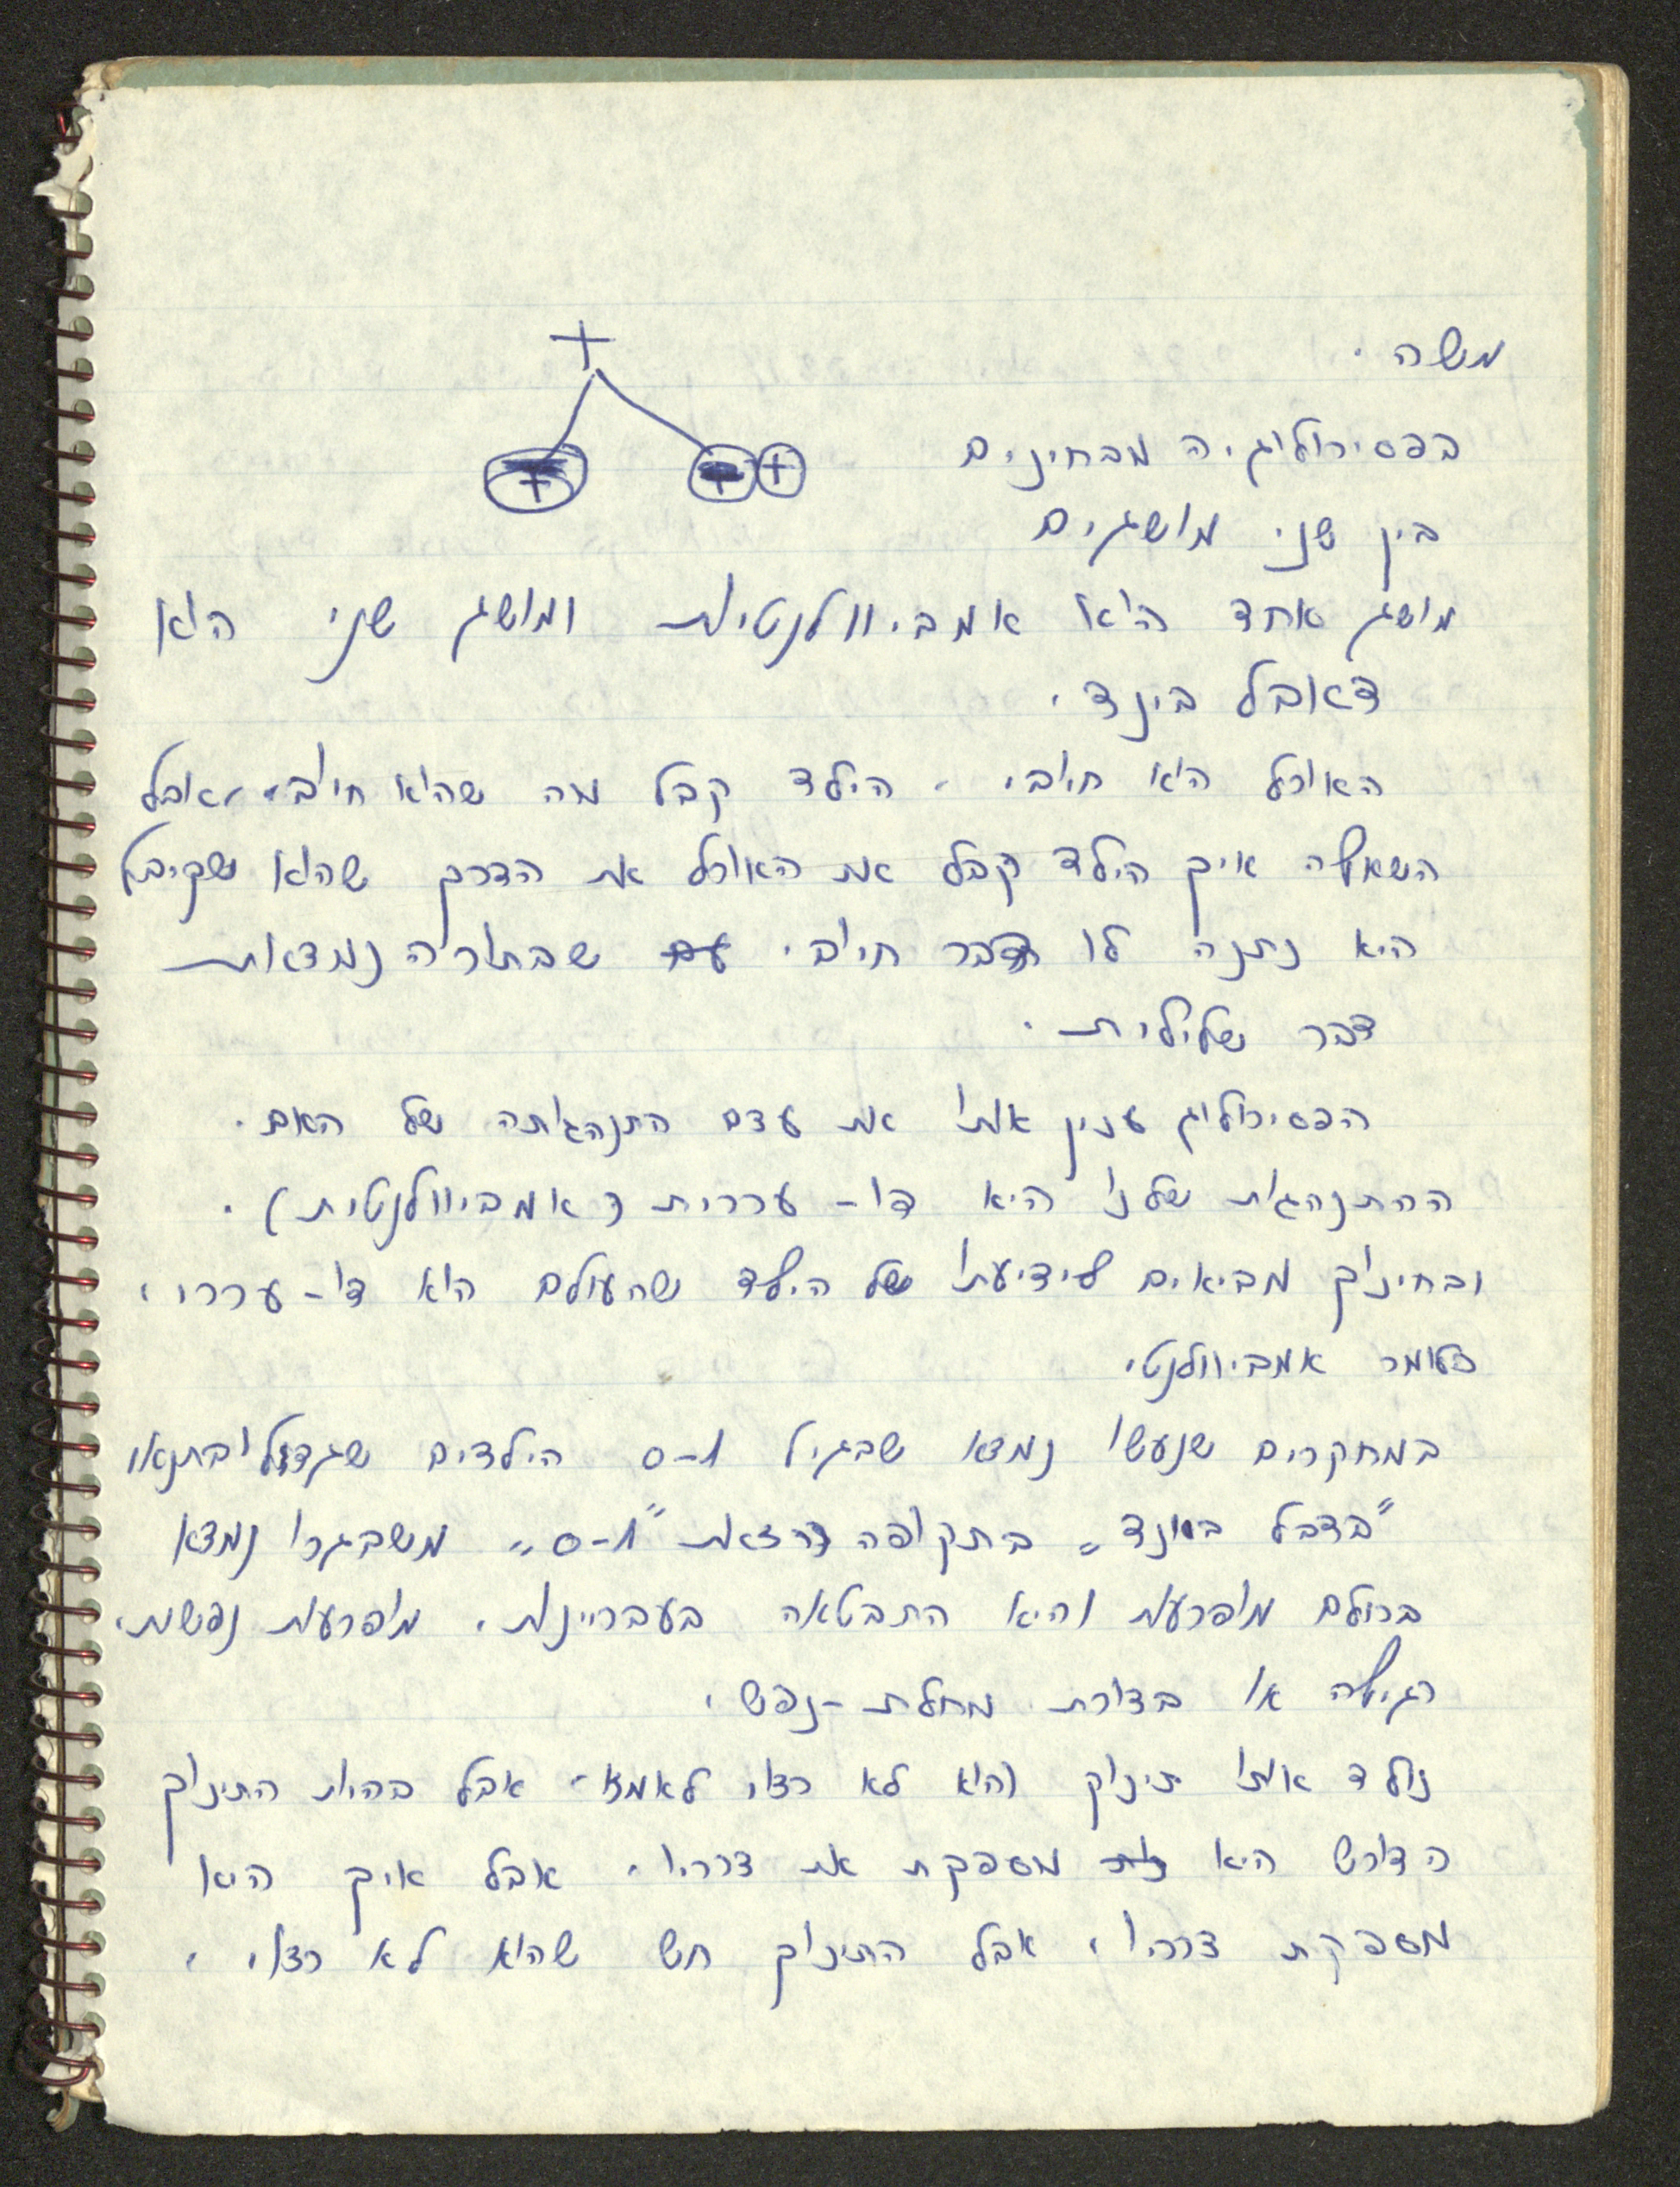 משה.
בפסיכולוגיה מבחינים
בין שני מושגים
מושג אחד הוא אמביוולנטיות ומושג שני הוא
דאובל בינד.
האוכל הוא חיובי. הילד קבל מה שהוא חיובי, אבל
השאלה איך הילד קבל את האוכל את הדרך שהוא שקיבל
היא נתנה לו דבר חיובי שבתוכה נמצאות
דבר שלילית.
הפסיכולוג ענין אותו את עצם התנהגותה של האם.
ההתנהגות שלנו היא דו-ערכית (אמביוולנטית).
ובחינוך מביאים לידיעתו של הילד שהעולם הוא דו-ערכי,
כלומר אמביוולנטי
במחקרים שנעשו נמצא שבגיל 0-1 הילדים שגדלו בתנאי
"בדבל באונד" בתקופה הזאת "0-1" משבגרו נמצא
בכולם מופרעות והיא התבטאה בעבריינות, מופרעות נפשית,
רגילה או בצורת מחלת-נפש,
נולד אותו תינוק והוא לא רצוי לאמו, אבל בהיות התינוק
דורש היא מספקת את צרכיו, אבל איך היא
מספקת צרכיו, אבל התינוק חש שהוא לא רצוי,